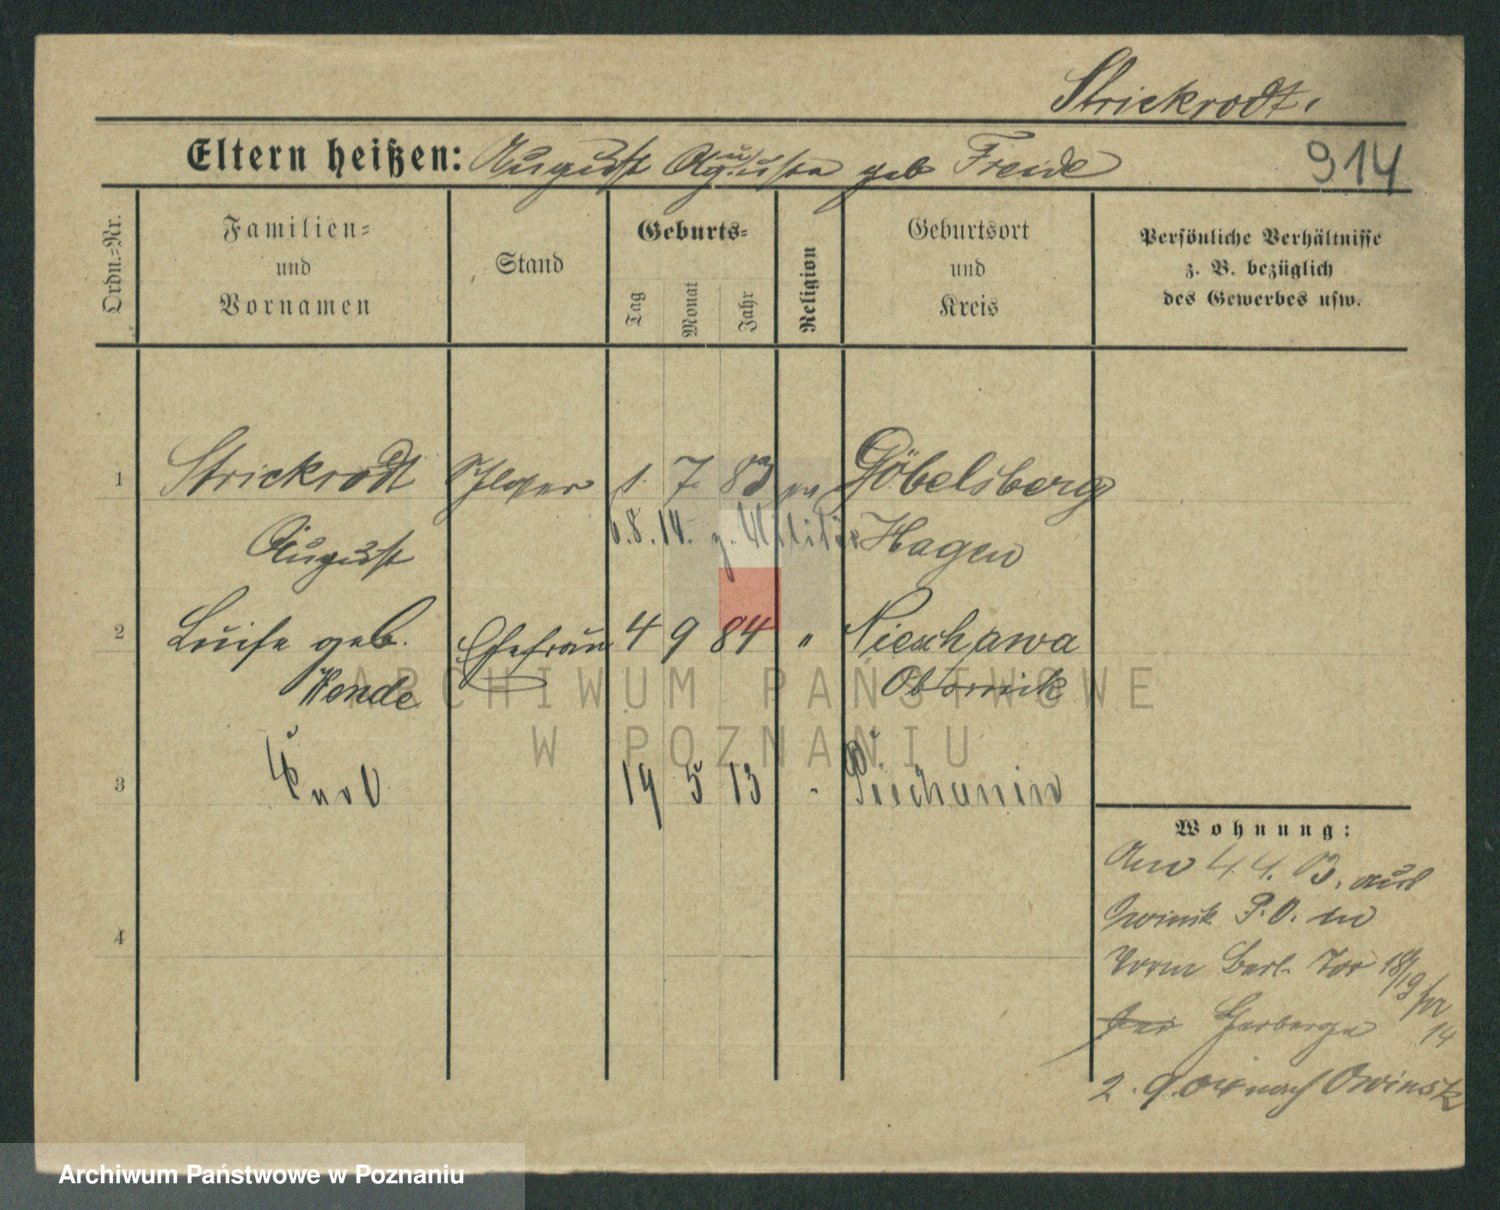 Strickrodt.
914
Eltern heißen: August Augusta geb Freide
Ordn.-Nr.
Familien-
und
Vornamen
Stand
Geburts-
Tag
Monat
Jahr
Religion
Geburtsort
und
Kreis
Persönliche Verhältnisse
z. B. bezüglich
des Gewerbes usw.
1 Strickrodt 1. 7. 83 Göbelsberg
August 6.8.14. z. Militär Hagen
2 Luise geb. Ehefrau 4 9 84 " Nieschawa
Wende Obornik
3 Kurt 19 5 13 " Piechanin
4
Wohnung:
Am 4.4. 03. aus
Owinsk P.O. in
Berl. Tor 18/19
14
2.9.04 nach Owinsk
ARCHIWUM PAŃSTWOWE
W POZNANIU
Archiwum Państwowe w Poznaniu